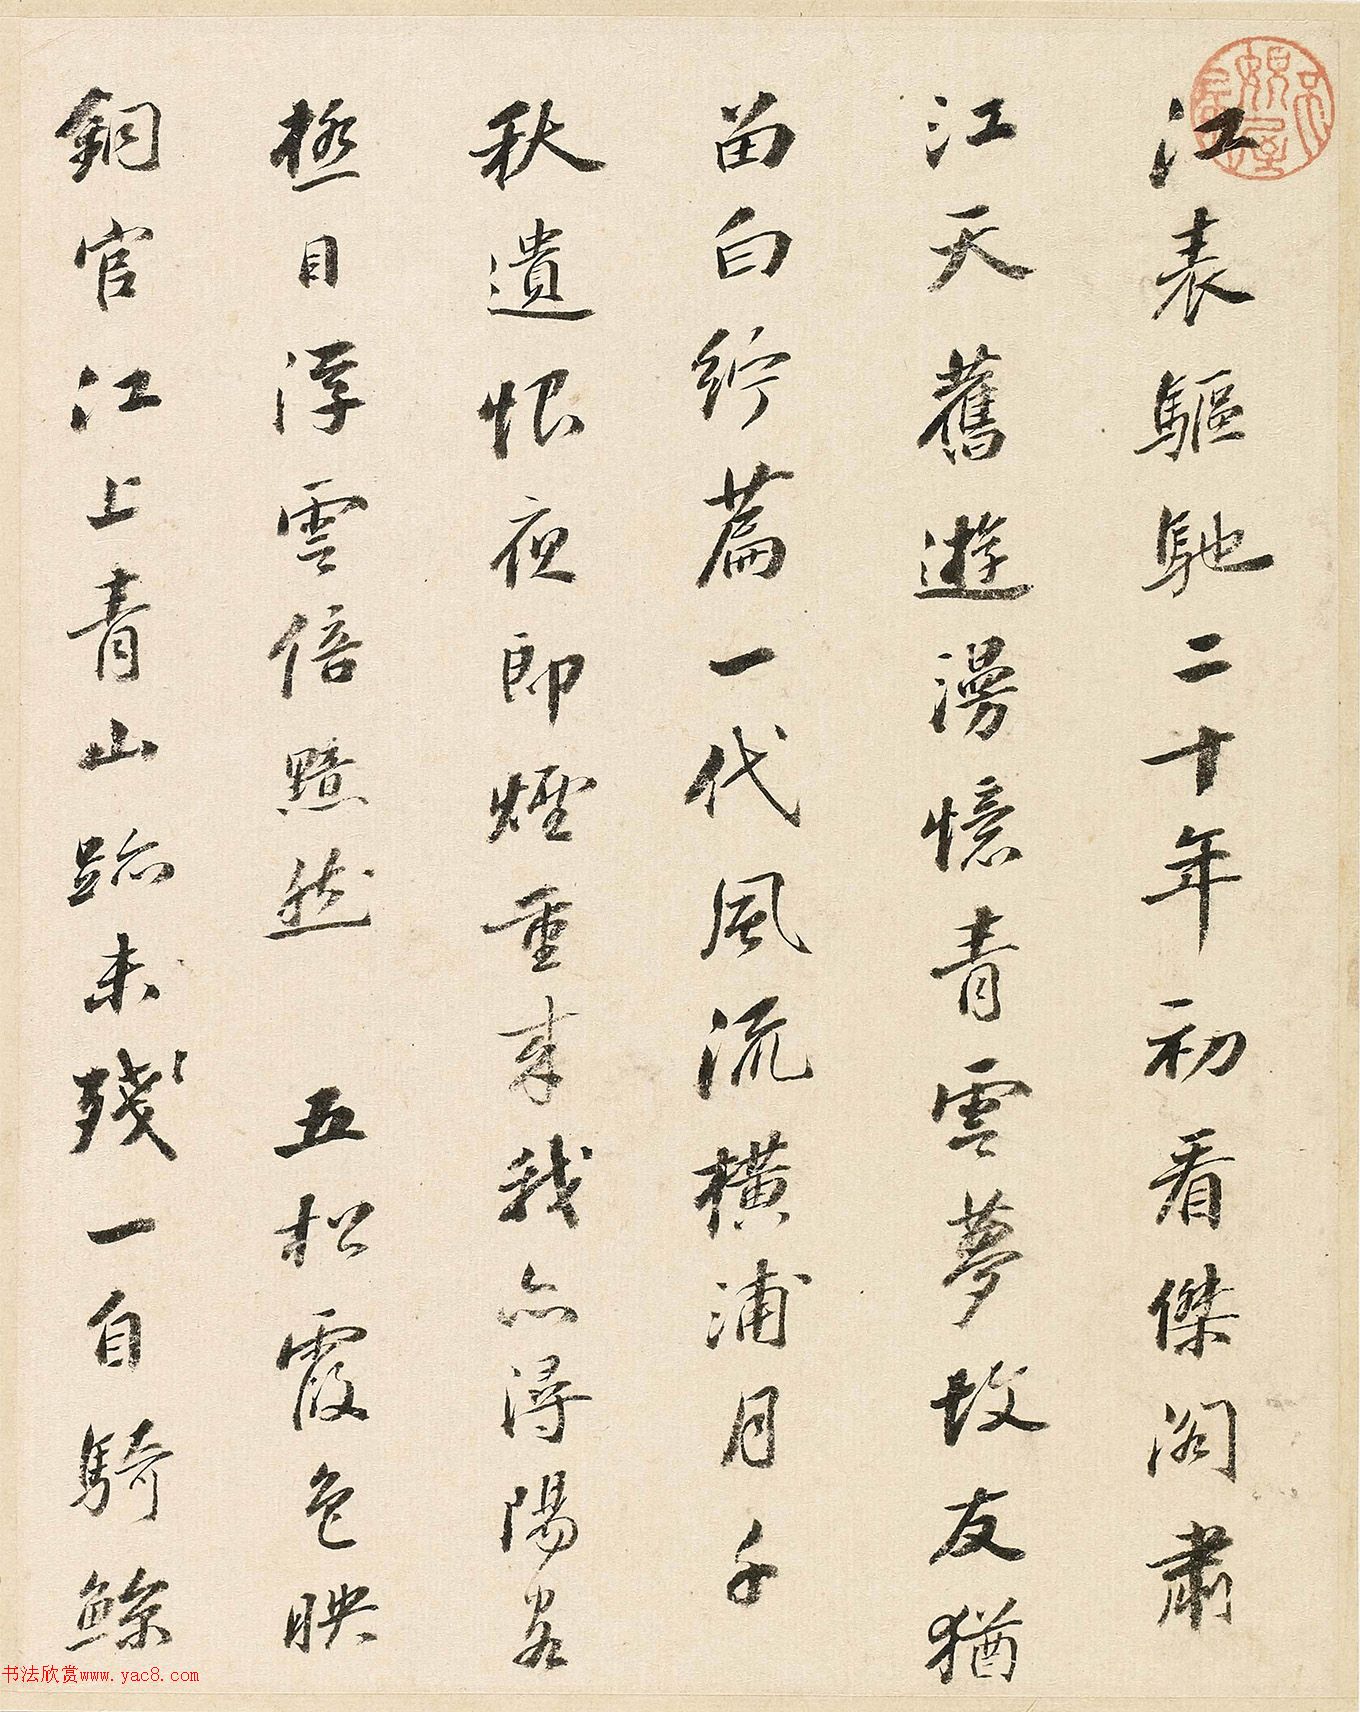 江表驅馳二十年初看傑閣肅
江天舊遊漫憶青雲夢故友猶
留白紵篇一代風流橫浦月千
秋遺恨夜郎煙重來我亦潯陽客
極目浮雲倍黯然 五松霞色映
銅官江上青山跡未殘一自騎鯨
书法欣赏www.yac8.com